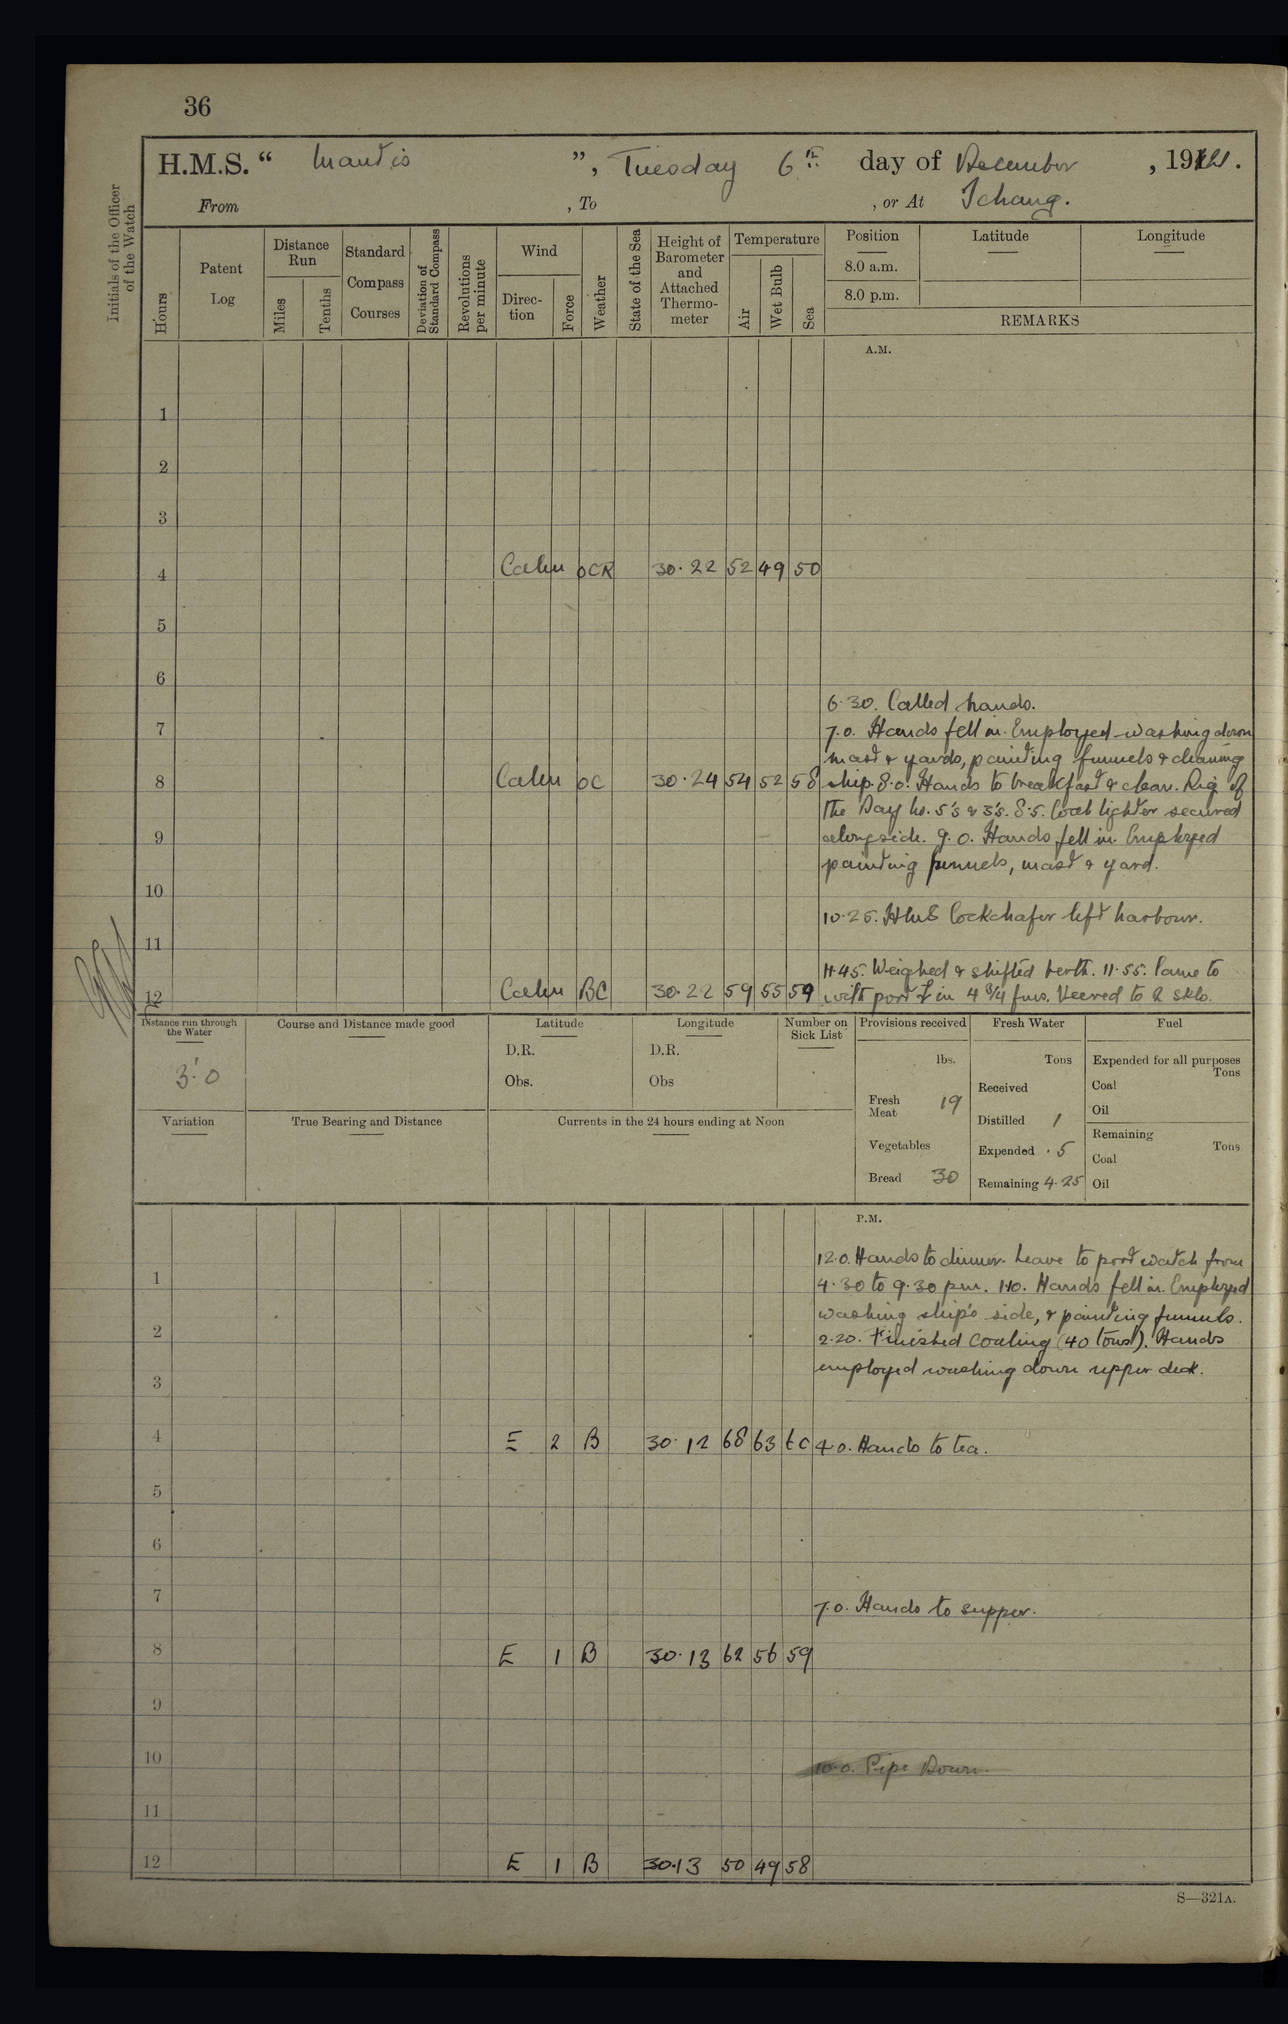 36
H.M.S. “ Mantis ”, Tuesday 6th day of December , 1921.
From , To , or At Ichang.
Initials of the Officer of the Watch
Hours
Patent Log
Distance Run
Miles
Tenths
Standard Compass Courses
Deviation of Standard Compass
Revolutions per minute
Wind
Direc-tion
Force
Weather
State of the Sea
Height of Barometer and Attached Thermo-meter
Temperature
Air
Wet Bulb
Sea
Position
Latitude
Longitude
8.0 a.m.
8.0 p.m.
REMARKS
A.M.
1
2
3
4 Calm OCR 30.22 52 49 50
5
6
6.30. Called hands.
7 7.0. Hands fell in. Employed washing down
mast & yards, painting funnels & cleaning
8 Calm OC 30.24 54 52 58 ship. 8.0. Hands to breakfast & clean. Rig of
the Day No. 5's & 3's. 8.5. Coal lighter secured
9 alongside. 9.0. Hands fell in. Employed
painting funnels, mast & yard.
10
10.25. HMS Cockchafer left harbour.
11
11.45. Weighed & shifted berth. 11.55. Came to
12 Calm BC 30.22 59 55 59 with port in 4 3/4 fms. Veered to 2 skls.
Distance run through the Water
3'.0
Course and Distance made good
Latitude
D.R.
Obs.
Longitude
D.R.
Obs
Number on Sick List
Provisions received
lbs.
Fresh Meat 19
Vegetables
Bread 30
Fresh Water
Tons
Received
Distilled 1
Expended .5
Remaining 4.25
Fuel
Expended for all purposes
Tons
Coal
Oil
Remaining
Tons
Coal
Oil
Variation
True Bearing and Distance
Currents in the 24 hours ending at Noon
P.M.
12.0. Hands to dinner. Leave to port watch from
1 4.30 to 9.30 pm. 1.10. Hands fell in. Employed
washing ship's side, & painting funnels.
2 2.20. Finished coaling (40 tons). Hands
3 employed washing down upper deck.
4 E 2 B 30.12 68 63 60 4.0. Hands to tea.
5
6
7 7.0. Hands to supper.
8 E 1 B 30.13 62 56 59
9
10 10.0. Pipe Down.
11
12 E 1 B 30.13 50 49 58
S—321A.